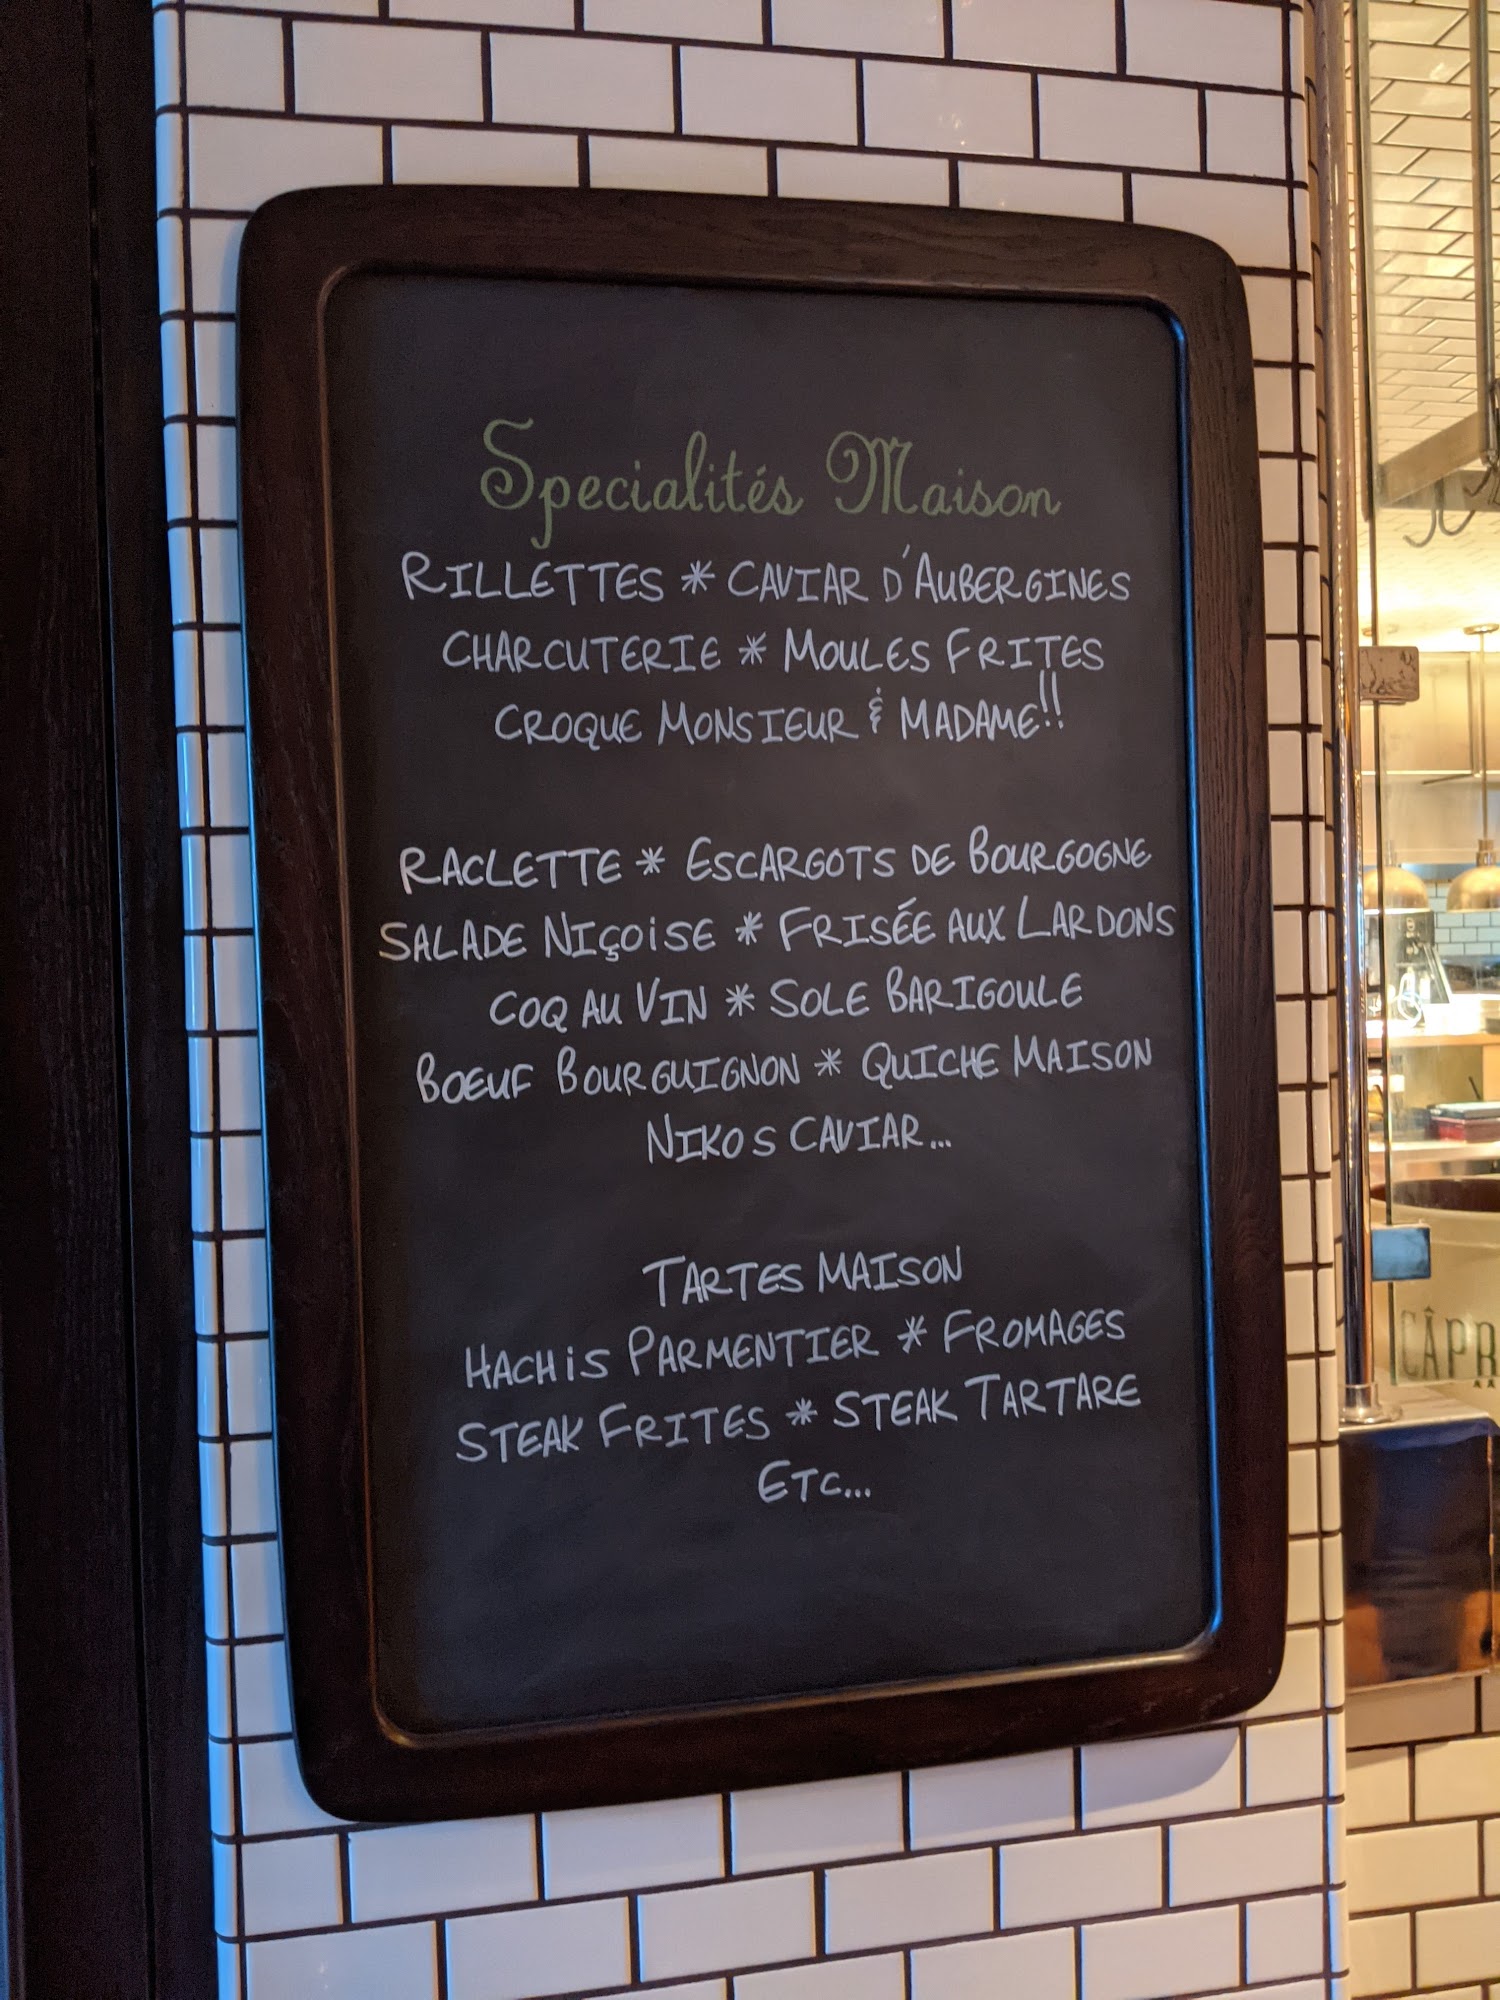 Specialités Maison
RILLETTES * CAVIAR D'AUBERGINES
CHARCUTERIE * MOULES FRITES
CROQUE MONSIEUR & MADAME!!
RACLETTE * ESCARGOTS DE BOURGOGNE
SALADE NIÇOISE * FRISÉE AUX LARDONS
COQ AU VIN * SOLE BARIGOULE
BOEUF BOURGUIGNON * QUICHE MAISON
NIKOS CAVIAR...
TARTES MAISON
HACHIS PARMENTIER * FROMAGES
STEAK FRITES * STEAK TARTARE
ETC...
CÂPR